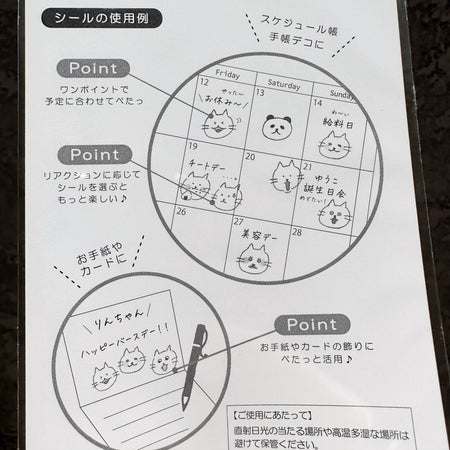 シールの使用例
スケジュール帳
手帳デコに
Point
ワンポイントで
予定に合わせてぺたっ
Friday
Saturday
Sunday
12
やった〜
お休み〜
13
14
わ〜い
給料日
Point
リアクションに応じて
シールを選ぶと
もっと楽しい♪
19
チートデー
20
21
ゆうこ
誕生日会
めでたい!
26
27
美容デー
28
お手紙や
カードに
りんちゃん
ハッピーバースデー!!
Point
お手紙やカードの飾りに
ぺたっと活用♪
【ご使用にあたって】
直射日光の当たる場所や高温多湿な場所は
避けて保管ください。